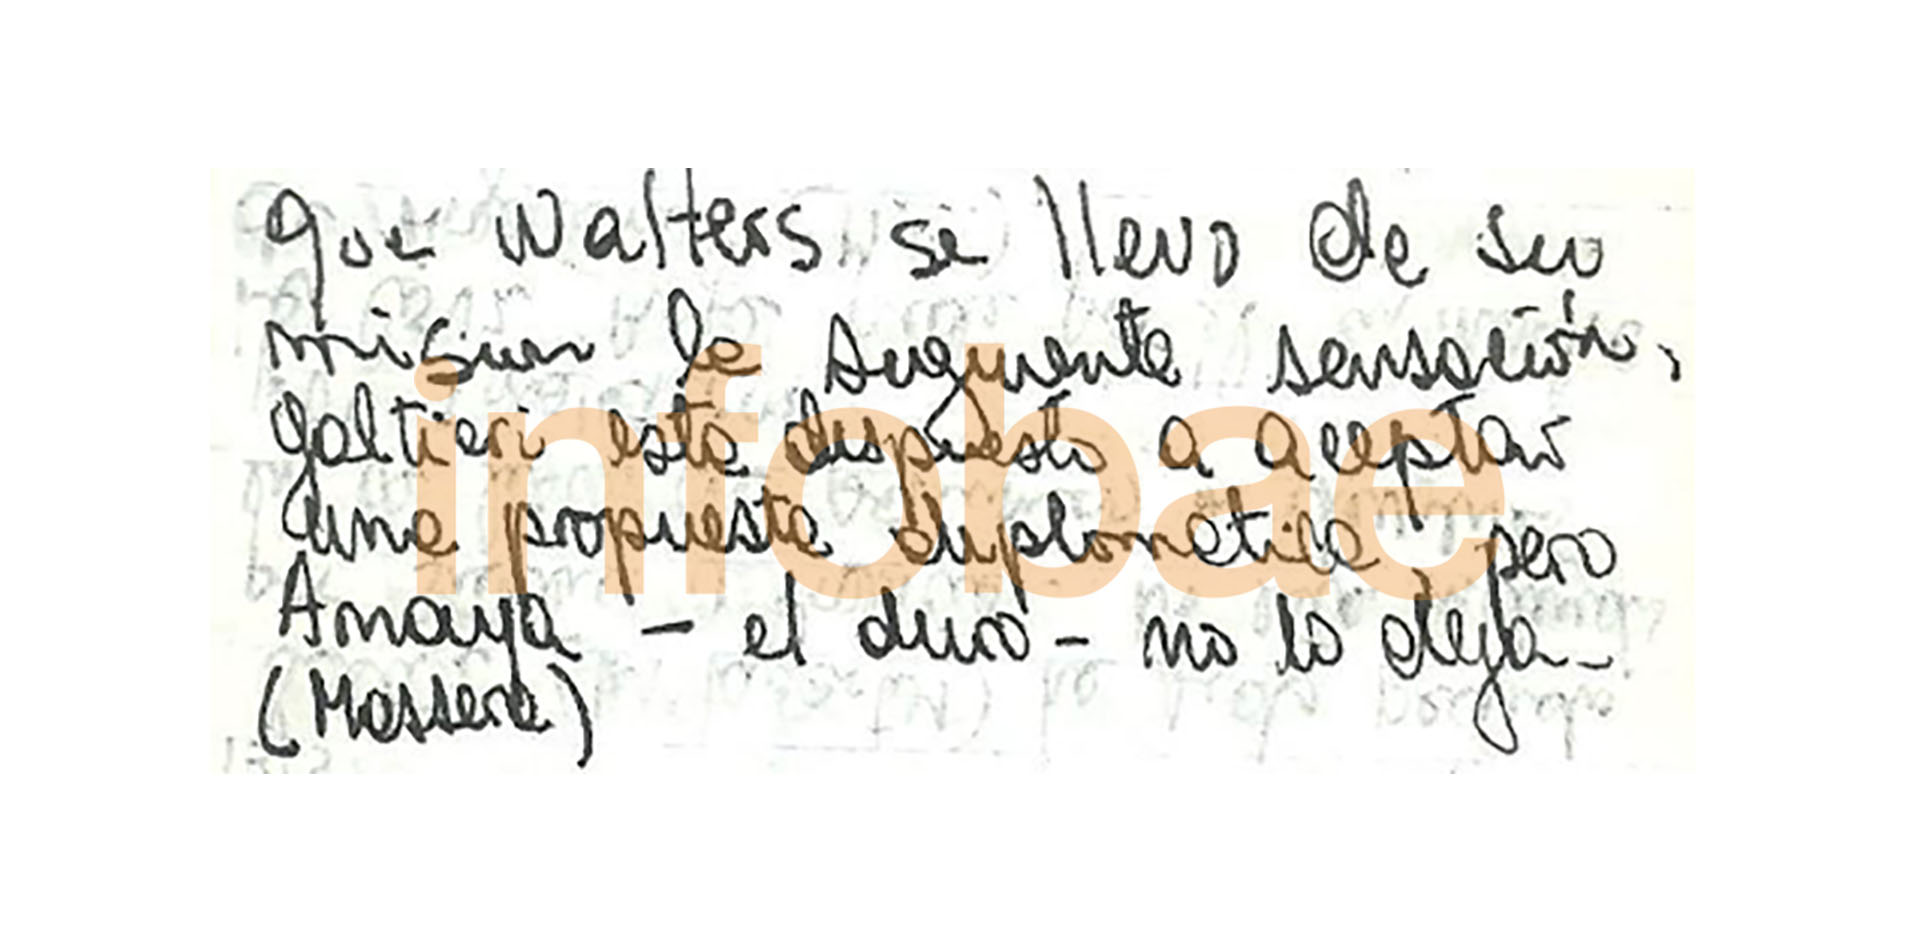 que Walters se llevo de su
mision la siguiente sensación,
Galtieri esta dispuesto a aceptar
una propuesta diplomática pero
Amaya - el duro - no lo deja -
(Massera)
infobae